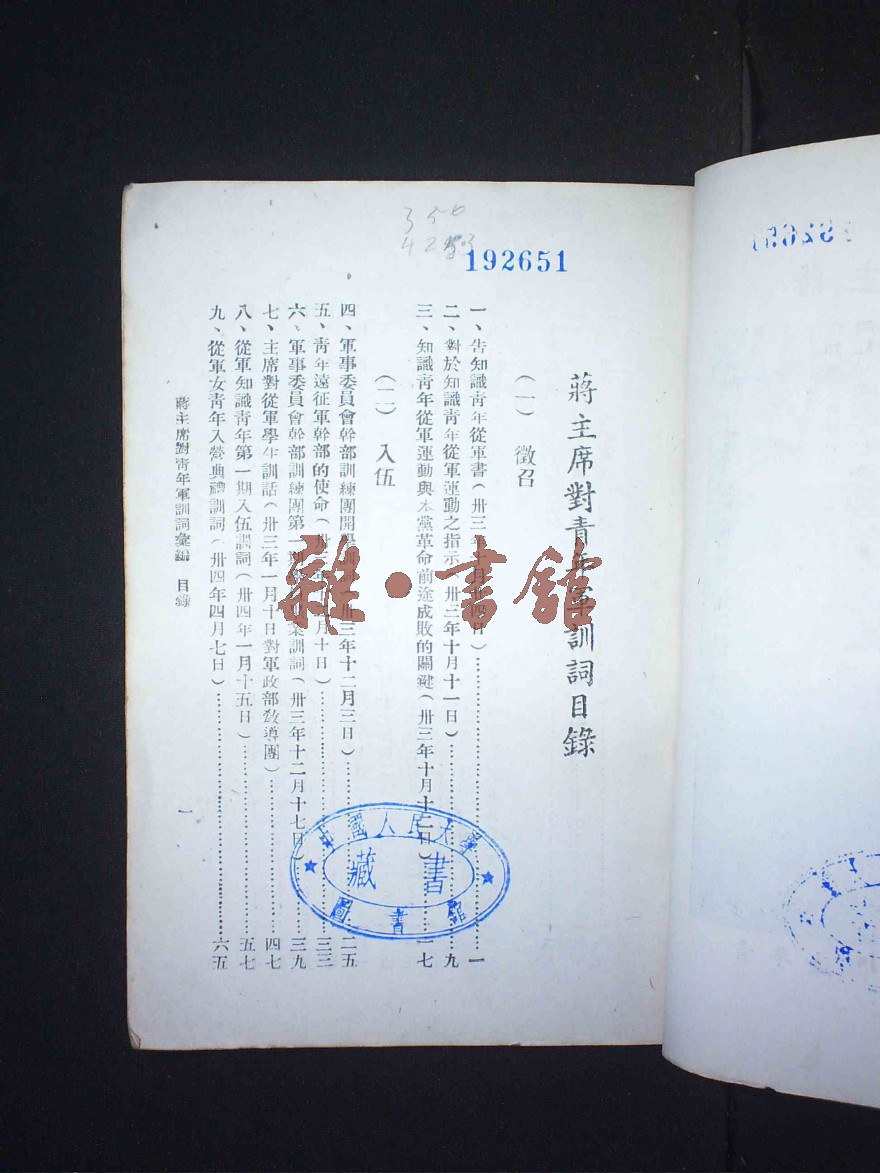 350
192651
蔣主席對青年軍訓詞目錄
(一) 徵召
一、告知識青年從軍書(卅三年十月廿四日)……一
二、對於知識青年從軍運動之指示(卅三年十月十一日)……九
三、知識青年從軍運動與本黨革命前途成敗的關鍵(卅三年十月十二日)……一七
(二) 入伍
四、軍事委員會幹部訓練團開學訓詞(卅三年十二月三日)……二五
五、青年遠征軍幹部的使命(卅三年十二月十日)……三三
六、軍事委員會幹部訓練團第一期畢業訓詞(卅三年十二月十七日)……三九
七、主席對從軍學生訓話(卅三年一月十日對軍政部敎導團)……四七
八、從軍知識青年第一期入伍訓詞(卅四年一月十五日)……五七
九、從軍女青年入營典禮訓詞(卅四年四月七日)……六五
蔣主席對青年軍訓詞彙編 目錄
一
中國人民大學
藏書
圖書館
雜·書館